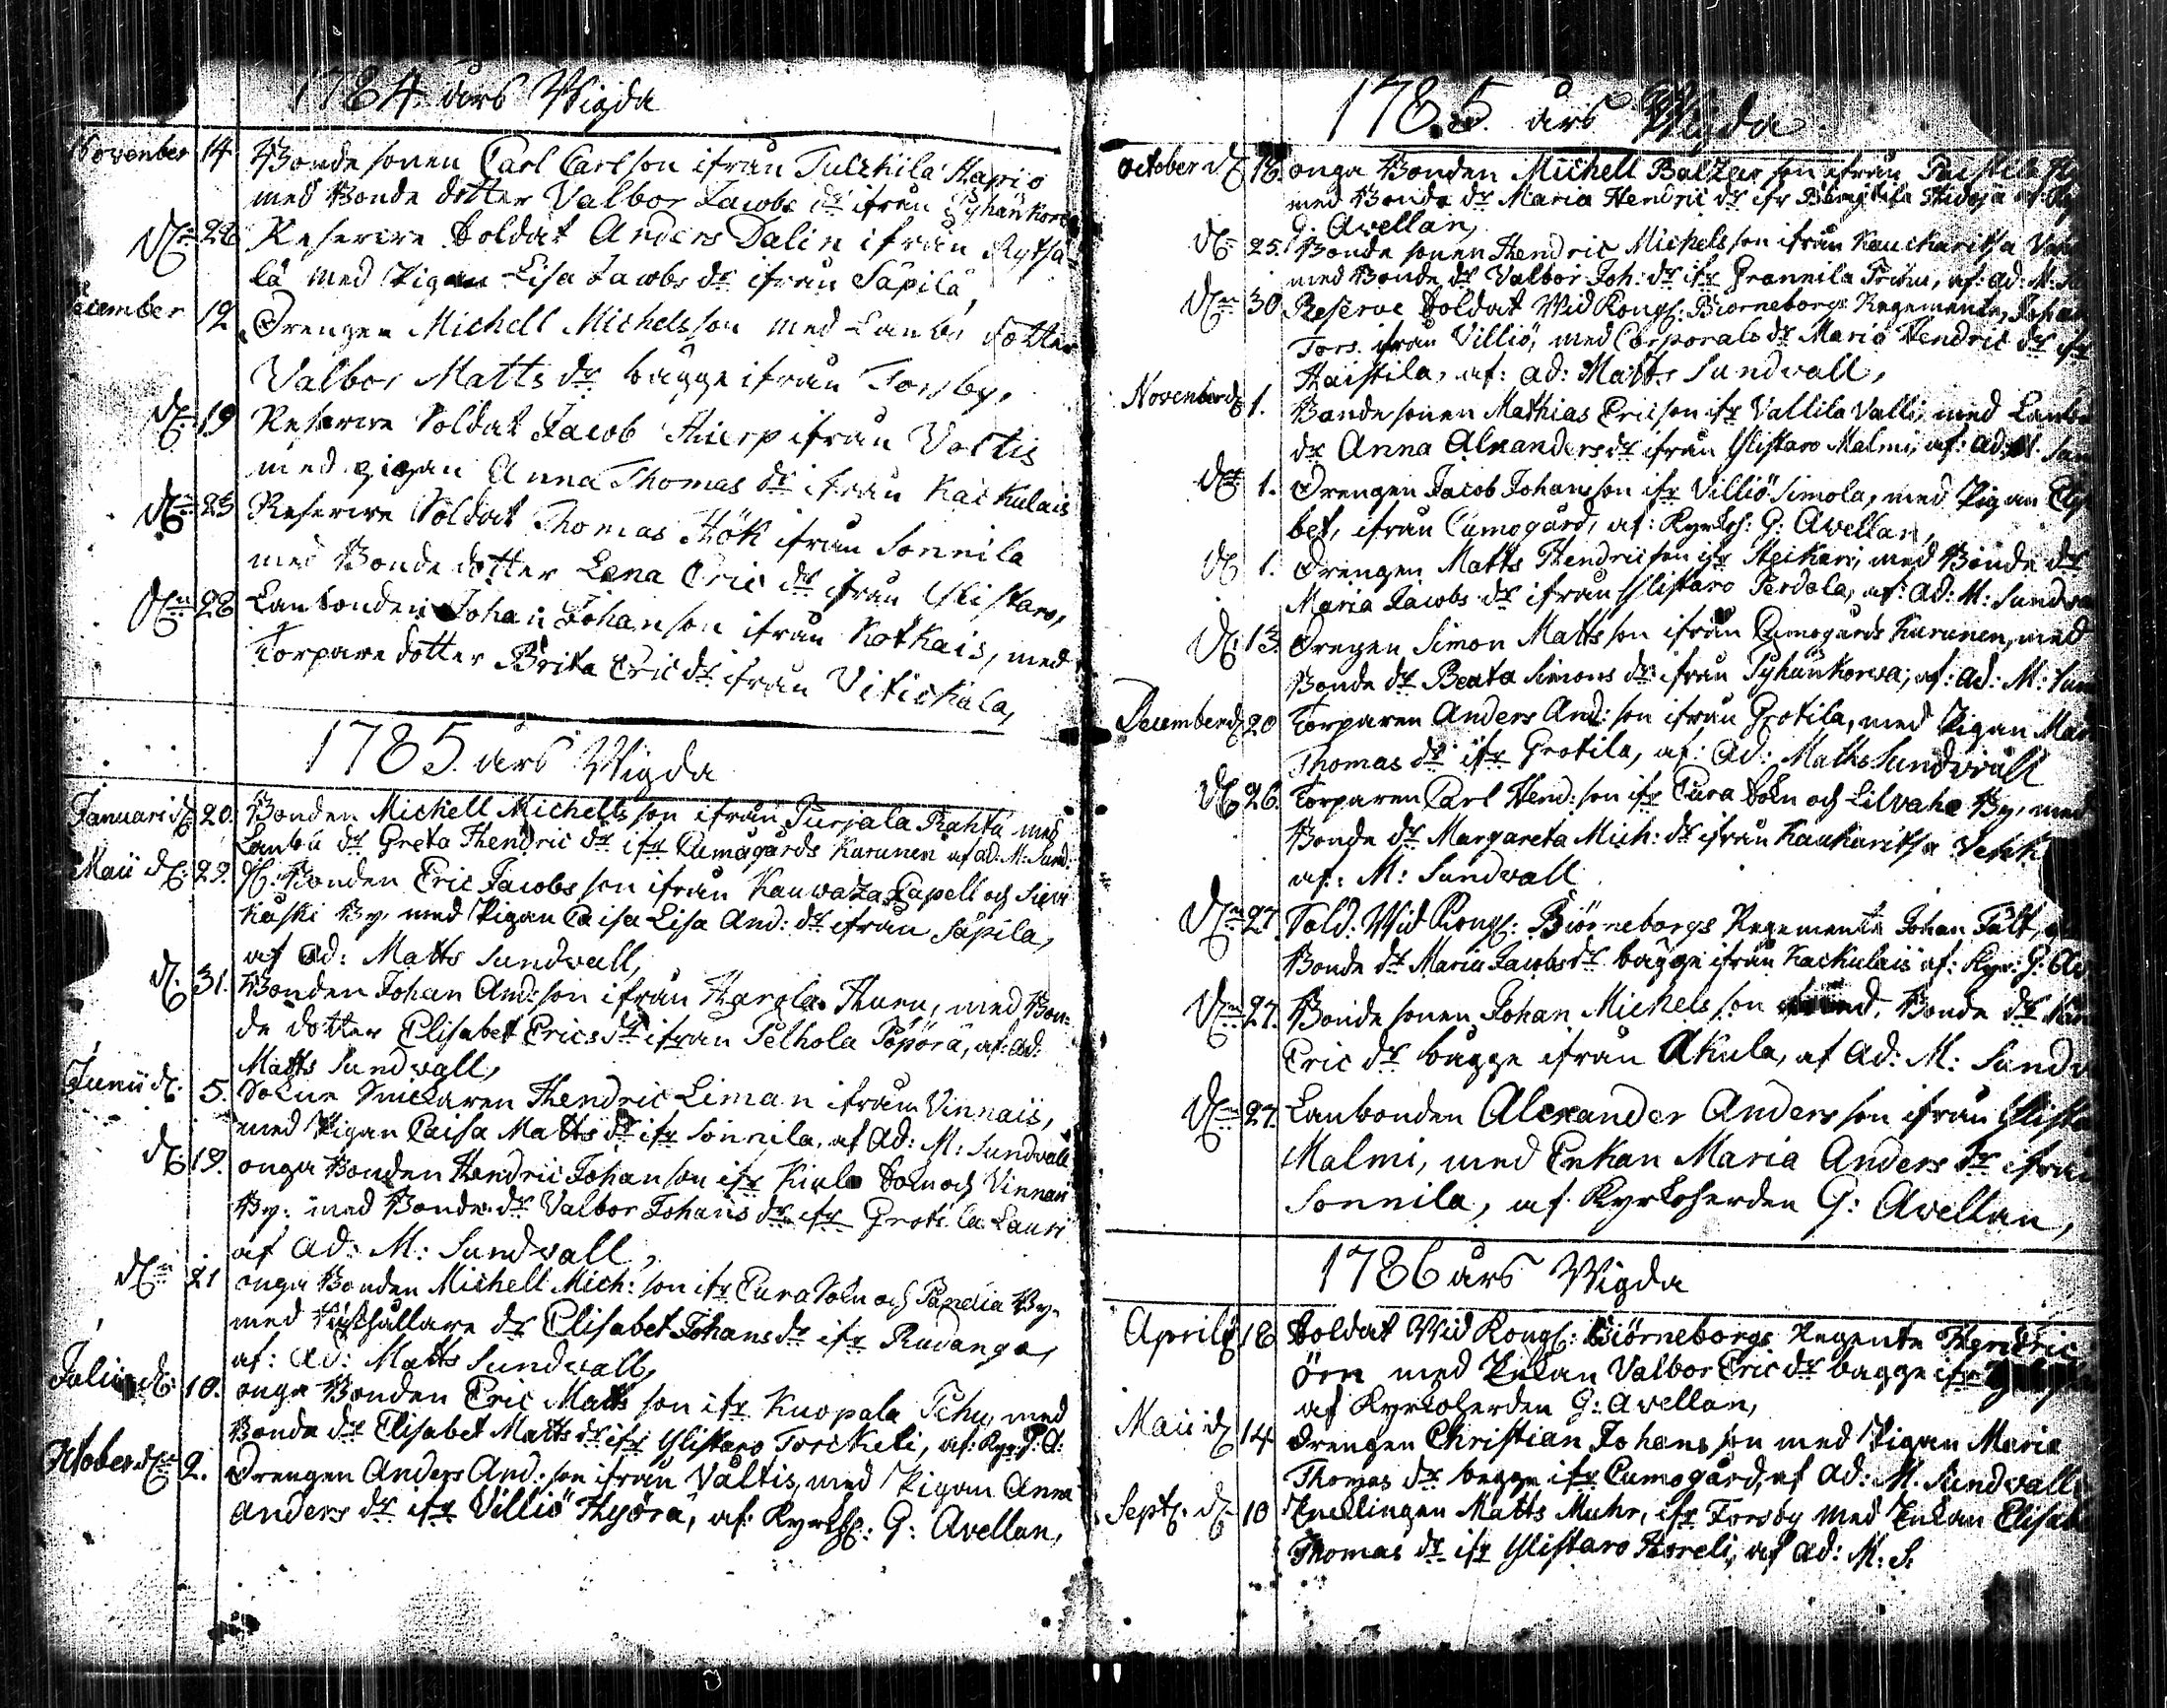 1784 års Wigda
November 14 Bonde sonen Carl Carlson ifrån Tulkkila Kario
med Bonde dotter Valbor Jacobs dr ifrån Pyhänkorva
dn 26 Reserve Soldat Anders Dalin ifrån Rytsä-
lä med Pigan Lisa Jacobs dr ifrån Säpilä,
December 12 Drengen Michell Michelsson med Lanbo dotter
Valbor Matts dr bägge ifrån Forsby,
d: 19 Reserve Soldat Jacob Hierp ifrån Valtis
med pigan Anna Thomas dr ifrån Kackulais
dn 23 Reserve Soldat Thomas Hök ifrån Sonnila
med Bonde dotter Lena Eric dr ifrån Ylistaro,
dn 28 Lanbonden Johan Johanson ifrån Kotkais, med
Torpare dotter Brita Eric dr ifrån Vitickala,
1785 års Wigda
Januari d: 20. Bonden Michell Michellsson ifrån Purjala Prahta med
Lanbo dr Greta Hendric dr ifr Cumogårds Karunen af ad. M. Sund:
Maii d: 29. Bonden Eric Jacobs son ifrån Kauwatza Capell och
Koski By, med Pigan Caisa Lisa And: dr ifrån Säpila,
af Ad: Matts Sundvall,
d: 31. Bonden Johan And: son ifrån Harola Huru, med Bon-
de dotter Elisabet Erics dr ifrån Pelhola Pöpörä, af: ad:
Matts Sundvall,
Junii d: 5. Sokne Snickaren Hendric Liman ifrån Vinnais,
med Pigan Caisa Matts dr ifr Sonnila, af Ad: M: Sundvall
d: 19. onga Bonden Hendric Johanson ifr Kiulo Sokn och Vinnari
By: med Bonde dr Valbor Johans dr ifr Grotila Lauri
af Ad: M: Sundvall,
dn 21 onga Bonden Michell Mich: son ifr Eura Sokn och Panelia By,
med Rusthållare dr Elisabet Johans dr ifr Rudanga,
af: Ad: Matts Sundvall,
Julius d: 10. onga Bonden Eric Matts son ifr Kuopala Pehu, med
Bonde dr Elisabet Matts dr ifr Ylistaro Torckeli, af: Kyr: G: A:
October dn 2. Drengen Anders And: son ifrån Valtis, med Pigan Anna
Anders dr ifr Villiö Hyörä, af: Kyrkh: G: Avellan,
1785 års Wigda
October d: 18. onga Bonden Michell Baltzar son ifrån
med Bonde dr Maria Hendric dr ifr
G: Avellan,
d: 25. Bonde sonen Hendric Michels son ifrån Kauckaritsa
med Bonde dr Valbor Joh: dr ifr Grannila, af: Ad: M: S
dn 30 Reserve Soldat Wid Kongl: Biorneborgs Regemente, Johan
Fors. ifrån Villiö, med Corporals dr Maria Hendric dr ifr
Haistila, af: Ad: Matts Sundvall,
November d: 1. Bonde sonen Mathias Ericson ifr Vallila Valli, med Lanbo
dr Anna Alxanders dr ifrån Ylistaro Malmi, af: Ad: M. Sun
dn 1. Drengen Jacob Johansson ifr Villiö Simola, med Pigan Elisa
bet, ifrån Cumogård, af: Kyrkh: G: Avellan,
d: 1. Drengen Matts Hendricson ifr Heickari, med Bonde dr
Maria Jacobs dr ifrån Ylistaro Perdola, af: Ad: M: Sundva
d: 13. Drengen Simon Matts son ifrån Cumogårds Karunen, med
Bonde dr Beata Simons dr ifrån Pyhänkorva, af: Ad: M: Sun
December d: 20 Torparen Anders And: son ifrån Grotila, med Pigan Mar
Thomas dr ifr Grotila, af: Ad: Matts Sundvall
d: 26. Torparen Carl Hend: son ifr Eura Sokn och Lilvaha By, med
Bonde dr Margareta Mich: dr ifrån Kaukaritsa
af: M: Sundvall
dn 27 Sold: Wid Kongl: Biörneborgs Regemente Johan Fält,
Bonde dr Maria Jacobs dr bägge ifrån Kackulais af: Kyr: G: Av
dn 27. Bonde sonen Johan Michels son med Bonde dr
Eric dr bägge ifrån Akula, af Ad: M: Sundv
dn 27. Lanbonden Alexander Anders son ifrån Ylista
Malmi, med Enkan Maria Anders dr ifrån
Sonnila, af Kyrkoherden G: Avellan,
1786 års Wigda
April d: 18 Soldat Wid Kongl: Biörneborgs Regente Hendric
Örn med Enkan Valbor Eric dr bägge ifr
af Kyrkoherden G: Avellan,
Maii d: 14 Drengen Christian Johans son med Pigan Maria
Thomas dr bägge ifr Cumogård, af Ad: M. Sundvall
Sept: d: 10 Enklingen Matts Muhr, ifr Forsby med Enkan Elisab
Thomas dr ifr Ylistaro Horeli, af Ad: M: S.